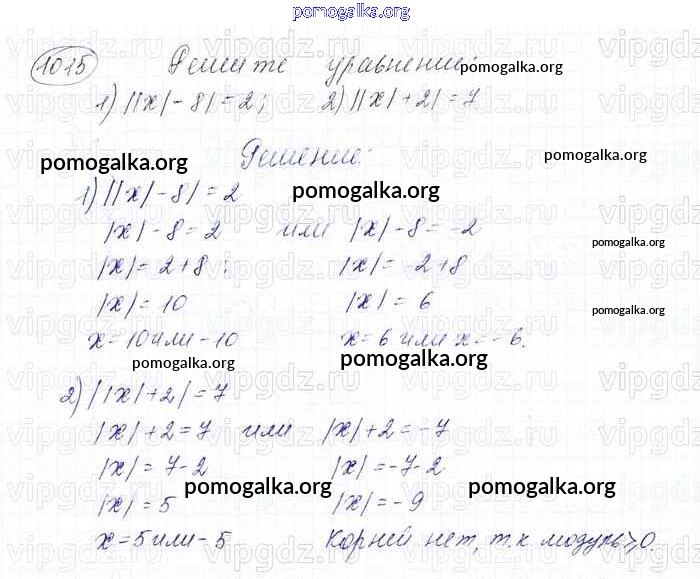 pomogalka.org
1015 Решите уравнение: pomogalka.org
1) ||x|-8|=2; 2) ||x|+2|=7
Решение:
pomogalka.org pomogalka.org pomogalka.org
1) ||x|-8|=2
|x|-8=2 или |x|-8=-2
pomogalka.org
|x|=2+8; |x|=-2+8
|x|=10 |x|=6
pomogalka.org
x=10 или -10 x=6 или x=-6.
pomogalka.org pomogalka.org
2) ||x|+2|=7
|x|+2=7 или |x|+2=-7
|x|=7-2 |x|=-7-2
pomogalka.org pomogalka.org
|x|=5 |x|=-9
x=5 или -5 Корней нет, т.к модуль ≥0.
vipgdz.ru